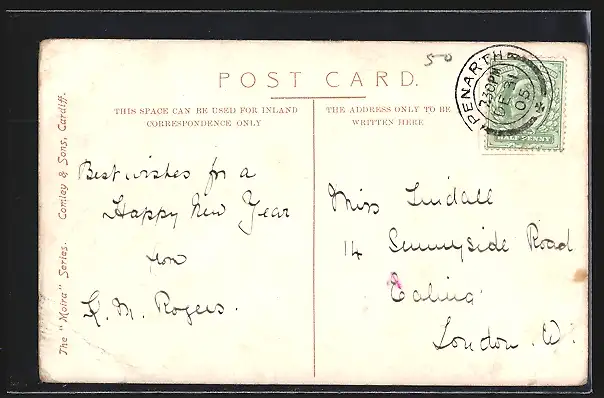 50
POST CARD.
THIS SPACE CAN BE USED FOR INLAND
CORRESPONDENCE ONLY
THE ADDRESS ONLY TO BE
WRITTEN HERE
PENARTH
7.30PM
DE 31
05
HALFPENNY
The "Moira" Series. Comley & Sons, Cardiff.
Best wishes for a
Happy New Year
from
K. M. Rogers.
Miss
14 Sunnyside Road
Ealing
London. W.